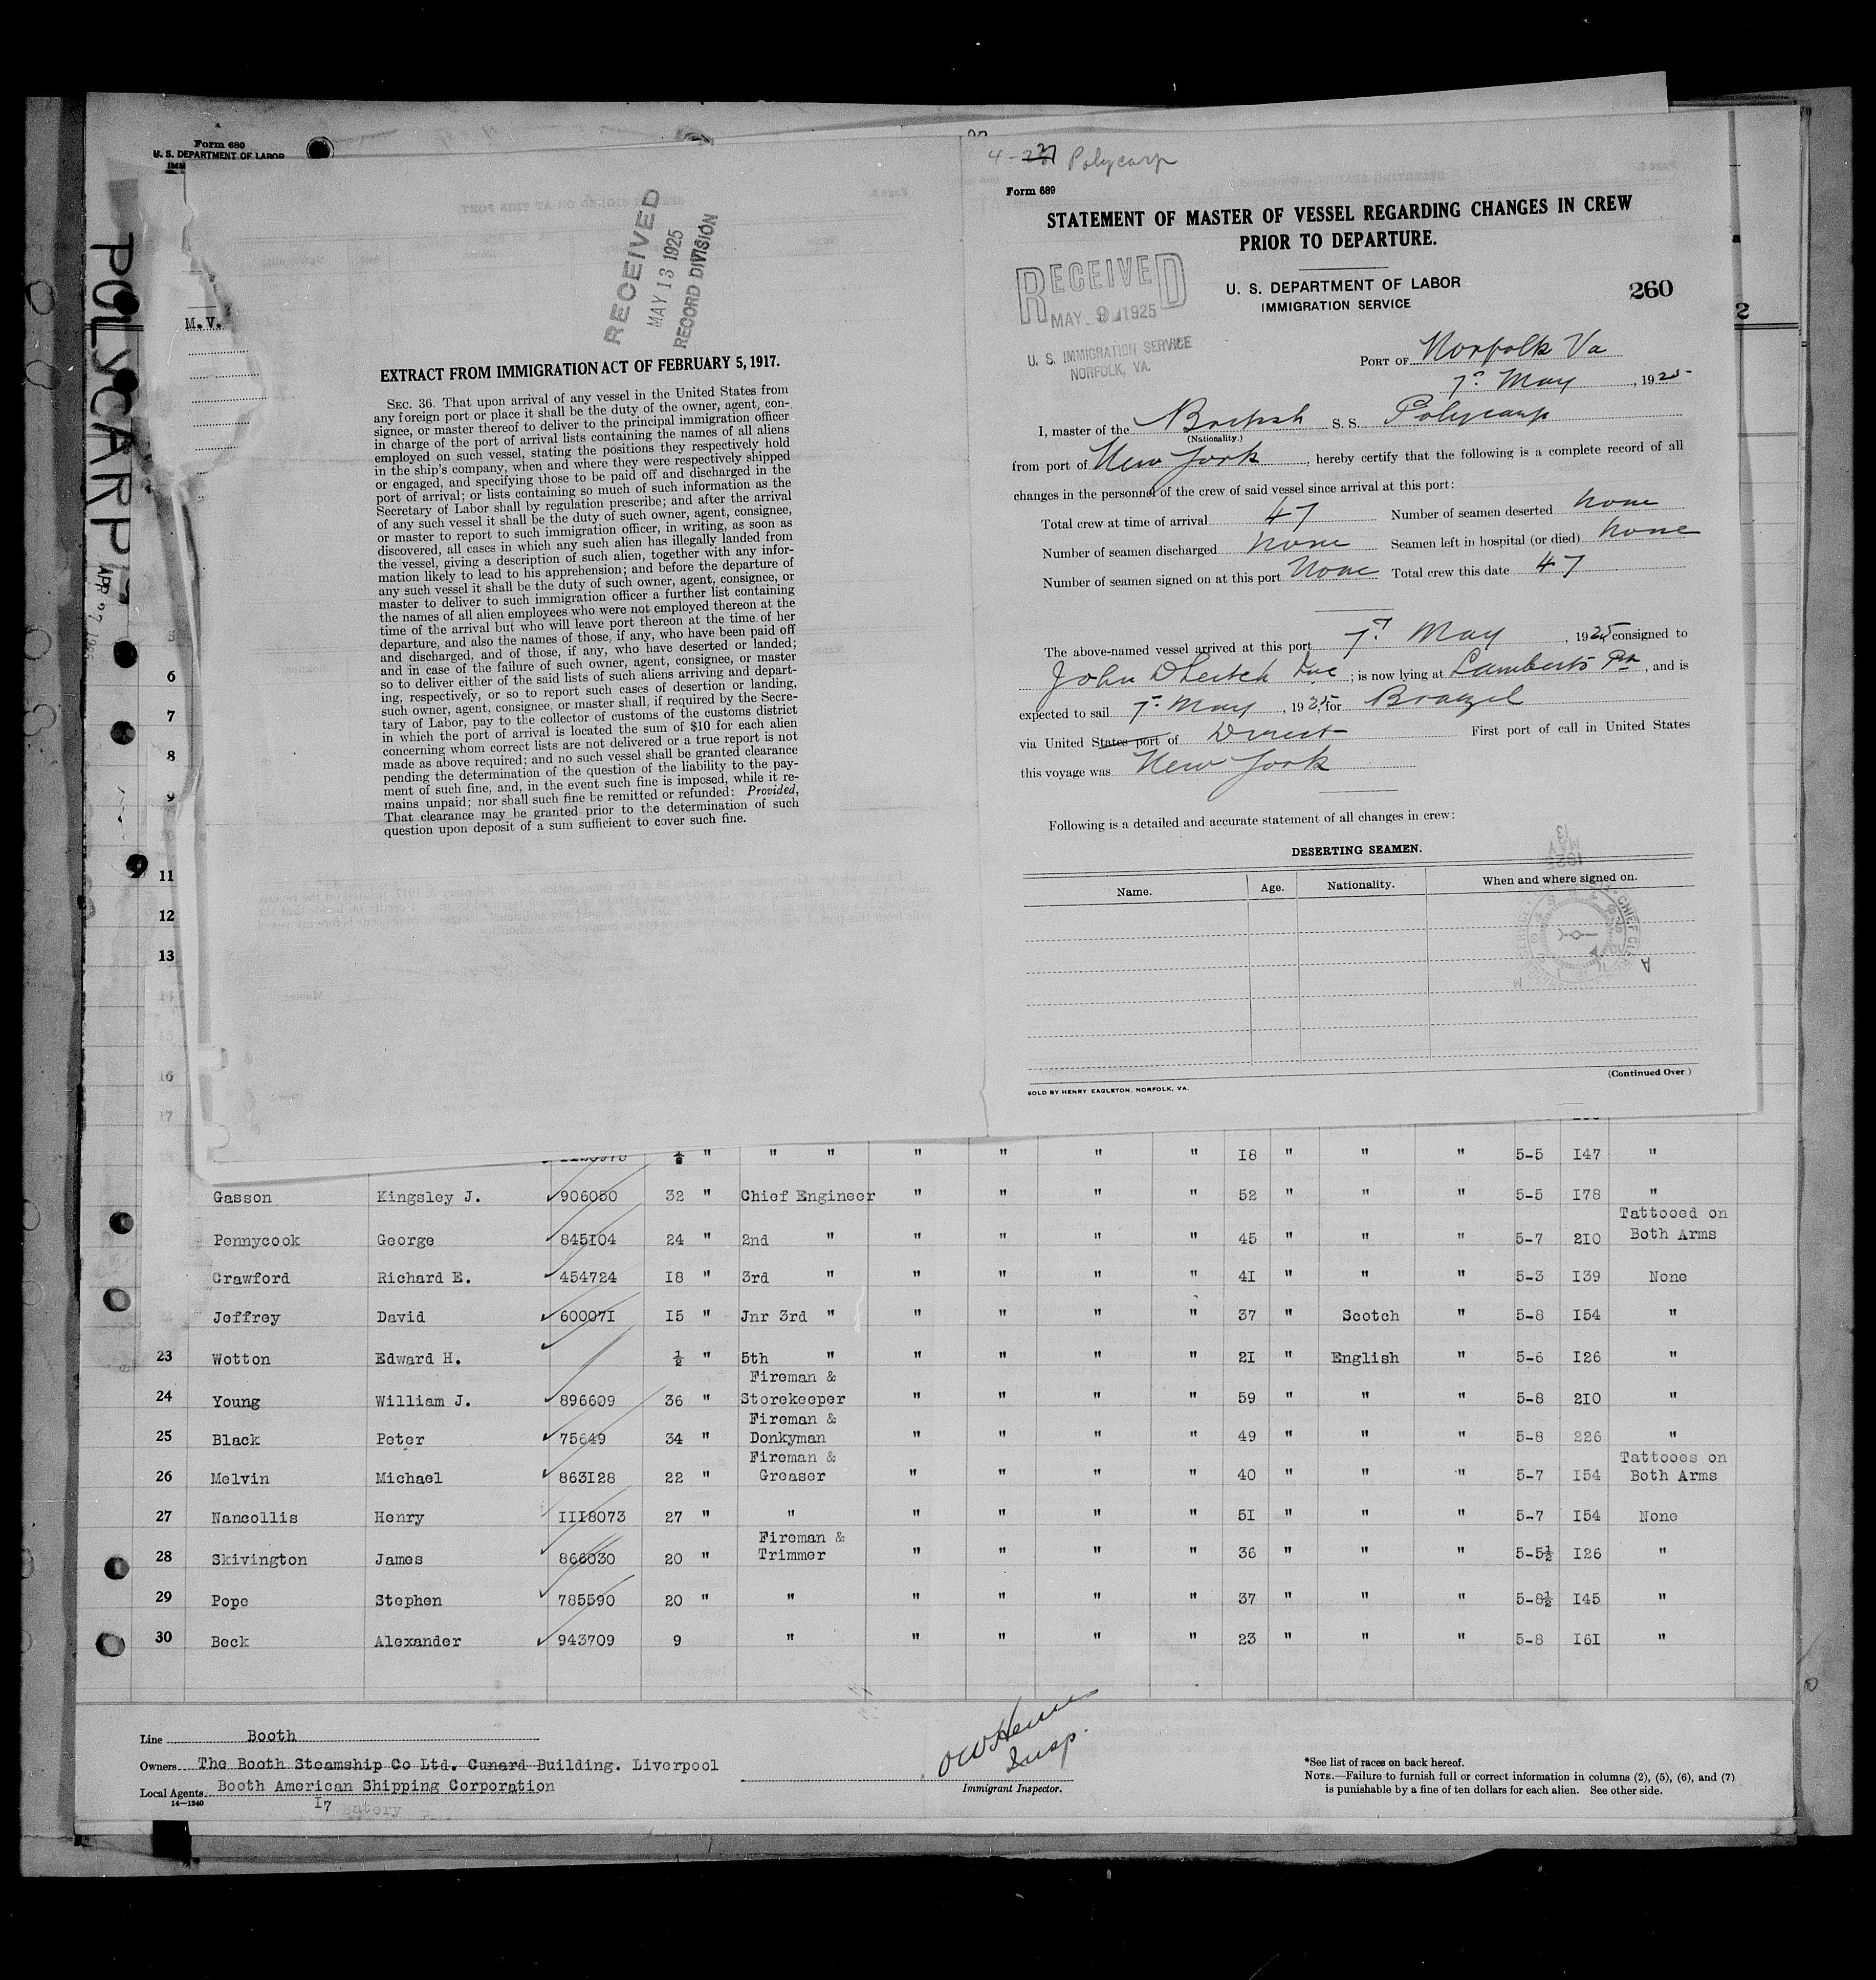 Form 680
U. S. DEPARTMENT OF LABOR
POLYCARP
APR 27 1925
M. V.
RECEIVED
MAY 13 1925
RECORD DIVISION
EXTRACT FROM IMMIGRATION ACT OF FEBRUARY 5, 1917.
SEC. 36. That upon arrival of any vessel in the United States from
any foreign port or place it shall be the duty of the owner, agent, con-
signee, or master thereof to deliver to the principal immigration officer
in charge of the port of arrival lists containing the names of all aliens
employed on such vessel, stating the positions they respectively hold
in the ship's company, when and where they were respectively shipped
or engaged, and specifying those to be paid off and discharged in the
port of arrival; or lists containing so much of such information as the
Secretary of Labor shall by regulation prescribe; and after the arrival
of any such vessel it shall be the duty of such owner, agent, consignee,
or master to report to such immigration officer, in writing, as soon as
discovered, all cases in which any such alien has illegally landed from
the vessel, giving a description of such alien, together with any infor-
mation likely to lead to his apprehension; and before the departure of
any such vessel it shall be the duty of such owner, agent, consignee, or
master to deliver to such immigration officer a further list containing
the names of all alien employees who were not employed thereon at the
time of the arrival but who will leave port thereon at the time of her
departure, and also the names of those, if any, who have been paid off
and discharged, and of those, if any, who have deserted or landed;
and in case of the failure of such owner, agent, consignee, or master
so to deliver either of the said lists of such aliens arriving and depart-
ing, respectively, or so to report such cases of desertion or landing,
such owner, agent, consignee, or master shall, if required by the Secre-
tary of Labor, pay to the collector of customs of the customs district
in which the port of arrival is located the sum of $10 for each alien
concerning whom correct lists are not delivered or a true report is not
made as above required; and no such vessel shall be granted clearance
pending the determination of the question of the liability to the pay-
ment of such fine, and, in the event such fine is imposed, while it re-
mains unpaid; nor shall such fine be remitted or refunded: Provided,
That clearance may be granted prior to the determination of such
question upon deposit of a sum sufficient to cover such fine.
4-227 Polycarp
Form 689
STATEMENT OF MASTER OF VESSEL REGARDING CHANGES IN CREW
PRIOR TO DEPARTURE.
U. S. DEPARTMENT OF LABOR
IMMIGRATION SERVICE
260
RECEIVED
MAY 9 1925
U. S. IMMIGRATION SERVICE
NORFOLK, VA.
PORT OF Norfolk Va
7th May, 1925
I, master of the British S. S. Polycarp
(Nationality.)
from port of New York, hereby certify that the following is a complete record of all
changes in the personnel of the crew of said vessel since arrival at this port:
Total crew at time of arrival 47 Number of seamen deserted none
Number of seamen discharged none Seamen left in hospital (or died) none
Number of seamen signed on at this port None Total crew this date 47
The above-named vessel arrived at this port 7th May, 1925 consigned to
John D Leitch Inc.; is now lying at Lamberts Pt, and is
expected to sail 7th May, 1925, for Brazil
via United States port of Direct First port of call in United States
this voyage was New York
Following is a detailed and accurate statement of all changes in crew:
DESERTING SEAMEN.
Name. Age. Nationality. When and where signed on.
(Continued Over.)
SOLD BY HENRY EAGLETON, NORFOLK, VA.
2
6
7
8
9
11
12
13
14
16
17
18 ½ " " " " " " " 18 " " " 5-5 147 "
Gasson Kingsley J. 906050 32 " Chief Engineer " " " " 52 " " " 5-5 178 "
Pennycook George 845104 24 " 2nd " " " " " 45 " " " 5-7 210 Tattooed on Both Arms
Crawford Richard E. 454724 18 " 3rd " " " " " 41 " " " 5-3 139 None
Jeffrey David 600071 15 " Jnr 3rd " " " " " 37 " Scotch " 5-8 154 "
23 Wotton Edward H. ½ " 5th " " " " " 21 " English " 5-6 126 "
24 Young William J. 896609 36 " Fireman & Storekeeper " " " " 59 " " " 5-8 210 "
25 Black Peter 75649 34 " Fireman & Donkyman " " " " 49 " " " 5-8 226 "
26 Melvin Michael 863128 22 " Fireman & Greaser " " " " 40 " " " 5-7 154 Tattooes on Both Arms
27 Nancollis Henry 1118073 27 " " " " " " 51 " " " 5-7 154 None
28 Skivington James 866030 20 " Fireman & Trimmer " " " " 36 " " " 5-5½ 126 "
29 Pope Stephen 785590 20 " " " " " " 37 " " " 5-8½ 145 "
30 Beck Alexander 943709 9 " " " " " 23 " " " 5-8 161 "
Line Booth
Owners The Booth Steamship Co Ltd. Cunard Building. Liverpool
Local Agents Booth American Shipping Corporation
14—1240
17 Batery
Insp.
Immigrant Inspector.
*See list of races on back hereof.
NOTE.—Failure to furnish full or correct information in columns (2), (5), (6), and (7)
is punishable by a fine of ten dollars for each alien. See other side.